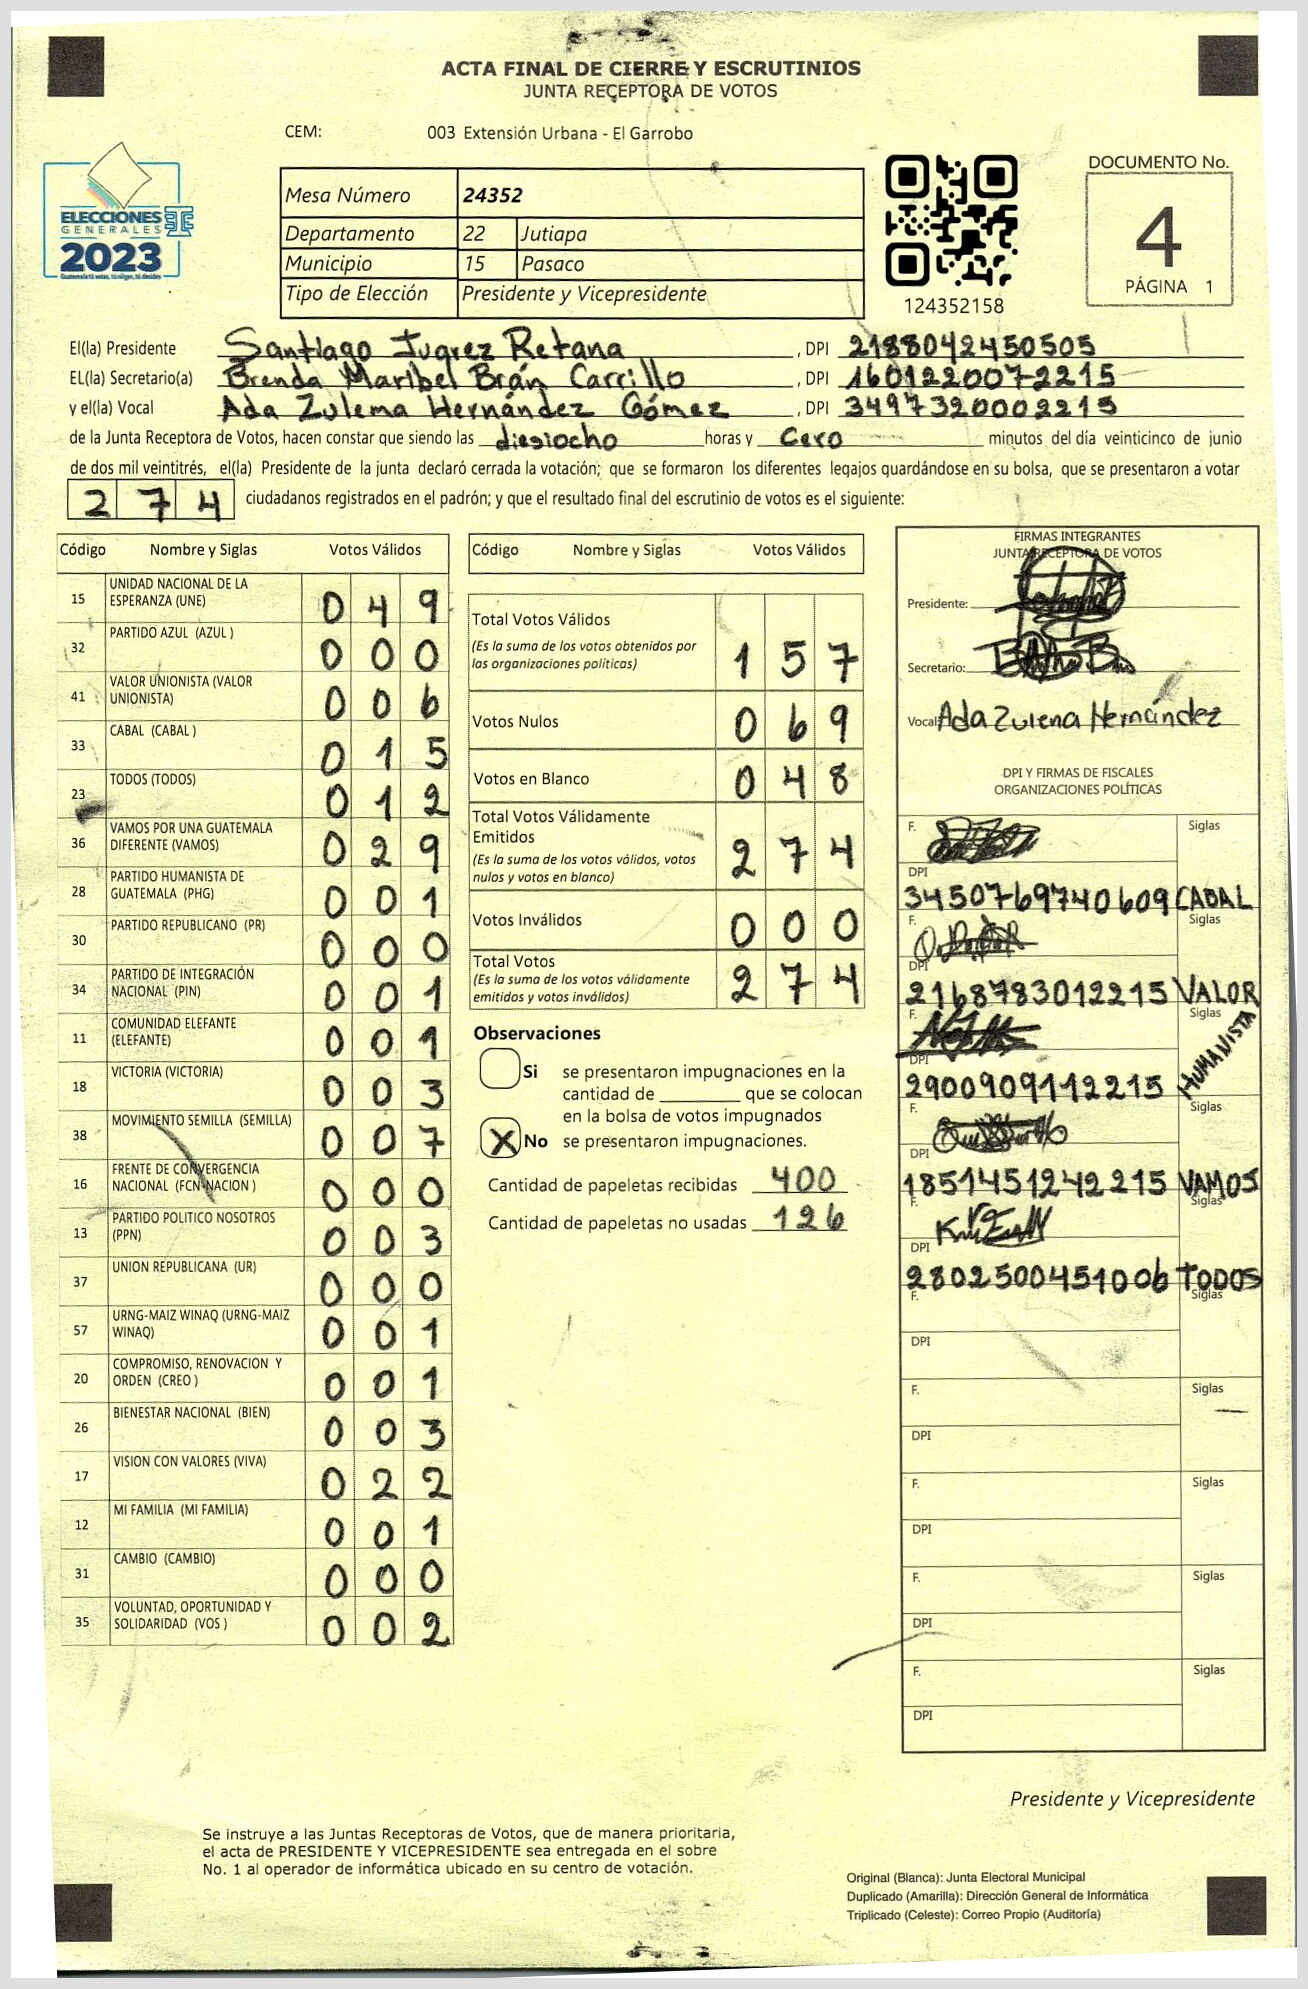 ACTA FINAL DE CIERRE Y ESCRUTINIOS
JUNTA RECEPTORA DE VOTOS
CEM: 003 Extensión Urbana - El Garrobo
ELECCIONES
GENERALES
2023
Guatemala tú votas, tú eliges, tú decides
TSE
Mesa Número 24352
Departamento 22 Jutiapa
Municipio 15 Pasaco
Tipo de Elección Presidente y Vicepresidente
124352158
DOCUMENTO No.
4
PÁGINA 1
El(la) Presidente Santiago Juarez Retana, DPI 2188042450505
EL(la) Secretario(a) Brenda Maribel Brán Carrillo, DPI 1601220072215
y el(la) Vocal Ada Zulema Hernández Gómez, DPI 3497320002215
de la Junta Receptora de Votos, hacen constar que siendo las diesiocho horas y cero minutos del día veinticinco de junio
de dos mil veintitrés, el(la) Presidente de la junta declaró cerrada la votación; que se formaron los diferentes legajos quardándose en su bolsa, que se presentaron a votar
274 ciudadanos registrados en el padrón; y que el resultado final del escrutinio de votos es el siguiente:
Código Nombre y Siglas Votos Válidos
15 UNIDAD NACIONAL DE LA ESPERANZA (UNE) 049
32 PARTIDO AZUL (AZUL ) 000
41 VALOR UNIONISTA (VALOR UNIONISTA) 006
33 CABAL (CABAL ) 015
23 TODOS (TODOS) 012
36 VAMOS POR UNA GUATEMALA DIFERENTE (VAMOS) 029
28 PARTIDO HUMANISTA DE GUATEMALA (PHG) 001
30 PARTIDO REPUBLICANO (PR) 000
34 PARTIDO DE INTEGRACIÓN NACIONAL (PIN) 001
11 COMUNIDAD ELEFANTE (ELEFANTE) 001
18 VICTORIA (VICTORIA) 003
38 MOVIMIENTO SEMILLA (SEMILLA) 007
16 FRENTE DE CONVERGENCIA NACIONAL (FCN-NACION ) 000
13 PARTIDO POLITICO NOSOTROS (PPN) 003
37 UNION REPUBLICANA (UR) 000
57 URNG-MAIZ WINAQ (URNG-MAIZ WINAQ) 001
20 COMPROMISO, RENOVACION Y ORDEN (CREO ) 001
26 BIENESTAR NACIONAL (BIEN) 003
17 VISION CON VALORES (VIVA) 022
12 MI FAMILIA (MI FAMILIA) 001
31 CAMBIO (CAMBIO) 000
35 VOLUNTAD, OPORTUNIDAD Y SOLIDARIDAD (VOS ) 002
Código Nombre y Siglas Votos Válidos
Total Votos Válidos
(Es la suma de los votos obtenidos por
las organizaciones políticas) 157
Votos Nulos 069
Votos en Blanco 048
Total Votos Válidamente
Emitidos
(Es la suma de los votos válidos, votos
nulos y votos en blanco) 274
Votos Inválidos 000
Total Votos
(Es la suma de los votos válidamente
emitidos y votos inválidos) 274
Observaciones
Si se presentaron impugnaciones en la
cantidad de ________ que se colocan
en la bolsa de votos impugnados
X No se presentaron impugnaciones.
Cantidad de papeletas recibidas 400
Cantidad de papeletas no usadas 126
FIRMAS INTEGRANTES
JUNTA RECEPTORA DE VOTOS
Presidente:
Secretario:
Vocal: Ada Zulema Hernández
DPI Y FIRMAS DE FISCALES
ORGANIZACIONES POLÍTICAS
F. Siglas
DPI
3450769740609 CABAL
F. Siglas
DPI
2168783012215 VALOR
F. Siglas
DPI
2900909112215 HUMANISTA
F. Siglas
DPI
1851451242215 VAMOS
F. Siglas
DPI
2802500451006 TODOS
F. Siglas
DPI
F. Siglas
DPI
F. Siglas
DPI
F. Siglas
DPI
F. Siglas
DPI
Presidente y Vicepresidente
Se instruye a las Juntas Receptoras de Votos, que de manera prioritaria,
el acta de PRESIDENTE Y VICEPRESIDENTE sea entregada en el sobre
No. 1 al operador de informática ubicado en su centro de votación.
Original (Blanca): Junta Electoral Municipal
Duplicado (Amarilla): Dirección General de Informática
Triplicado (Celeste): Correo Propio (Auditoría)